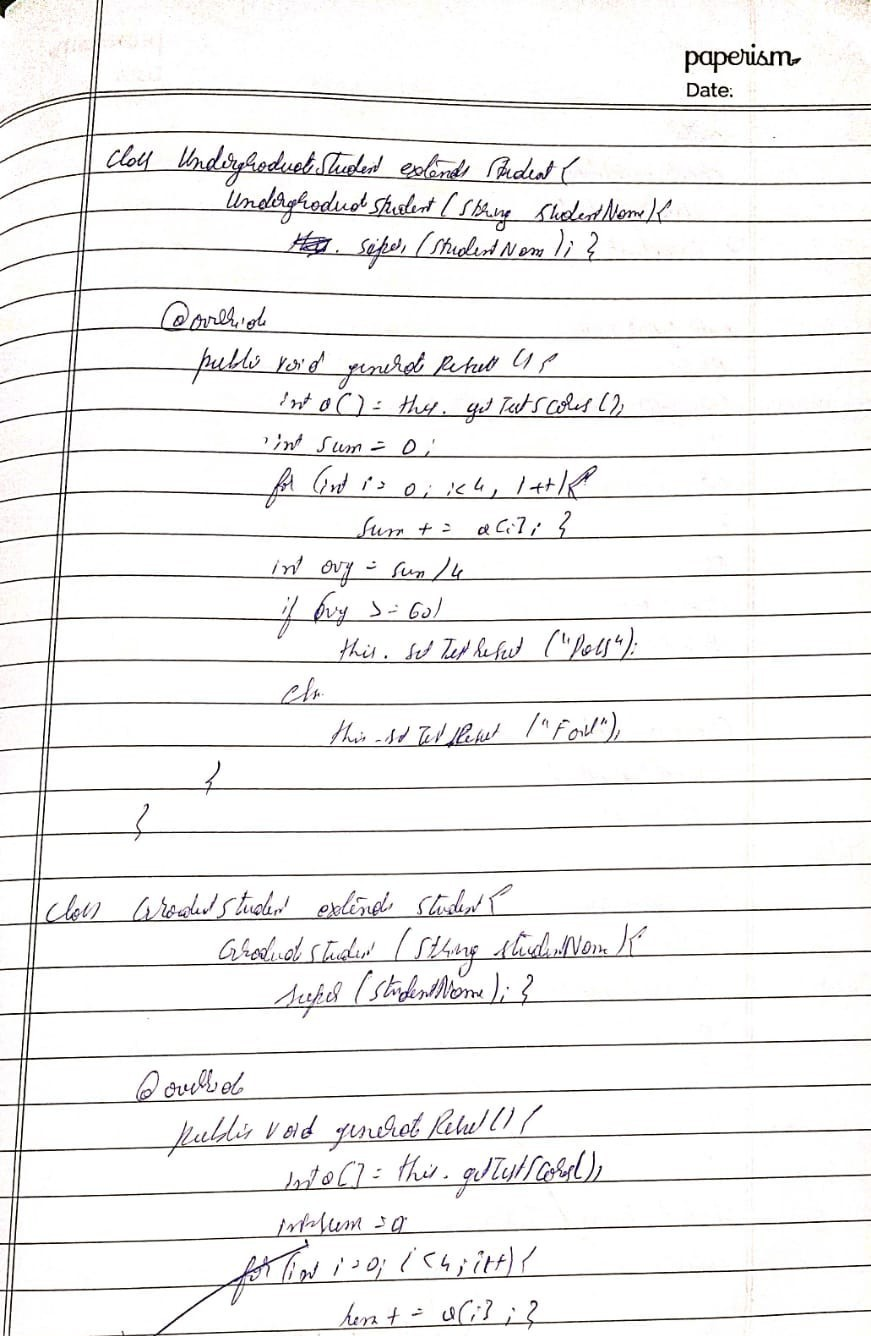 paperism
Date:
class UndergraduateStudent extends Student {
UndergraduateStudent (String studentName) {
super (studentName); }
@override
public void generateResult () {
int a[] = this. getTestScores ();
int sum = 0;
for (int i = 0; i<4, i++) {
sum += a[i]; }
int avg = sum/4
if (avg >= 60)
this. setTestResult ("Pass");
else
this. setTestResult ("Fail");
}
}
class GraduateStudent extends student {
GraduateStudent (String studentName) {
super (studentName); }
@override
public void generateResult () {
int a[] = this. getTestScores();
int sum = 0;
for (int i=0; i<4; i++) {
+= a[i]; }